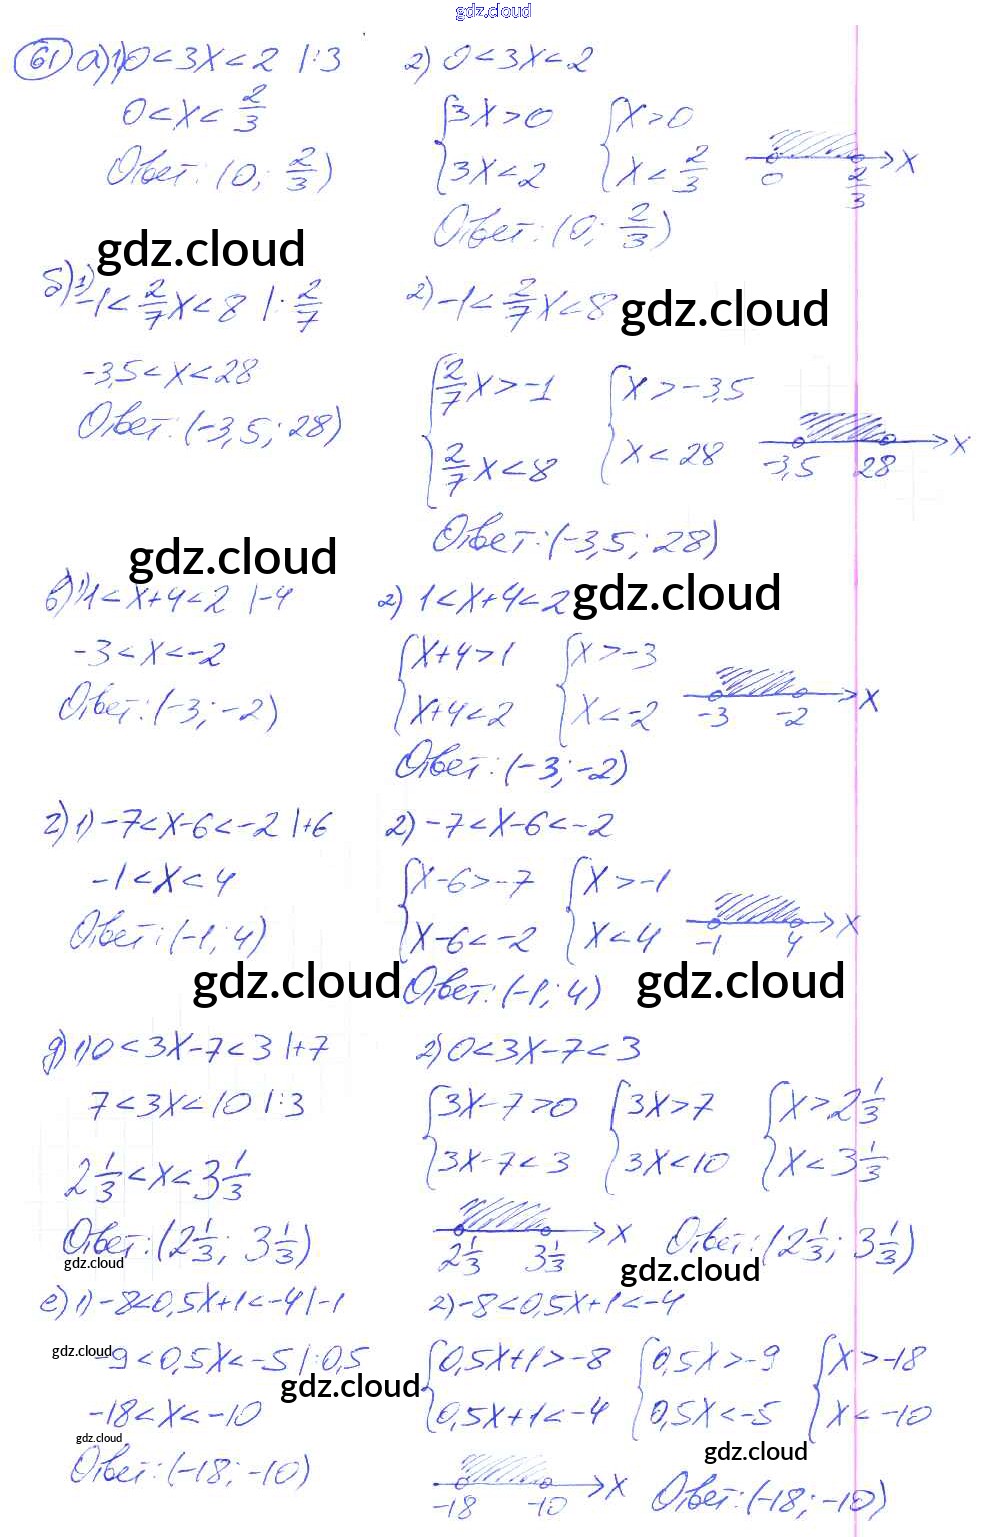 gdz.cloud
61 а) 1) 0 < 3x < 2 |:3
0 < x < 2/3
Ответ: (0; 2/3)
2) 0 < 3x < 2
{3x > 0 {x > 0
3x < 2 x < 2/3
0 2/3 x
Ответ: (0; 2/3)
gdz.cloud
б) 1) -1 < 2/7 x < 8 |: 2/7
-3,5 < x < 28
Ответ: (-3,5; 28)
2) -1 < 2/7 x < 8
gdz.cloud
{2/7 x > -1 {x > -3,5
2/7 x < 8 x < 28
-3,5 28 x
Ответ: (-3,5; 28)
gdz.cloud
в) 1) 1 < x+4 < 2 |-4
-3 < x < -2
Ответ: (-3; -2)
2) 1 < x+4 < 2
gdz.cloud
{x+4 > 1 {x > -3
x+4 < 2 x < -2
-3 -2 x
Ответ: (-3; -2)
г) 1) -7 < x-6 < -2 |+6
-1 < x < 4
Ответ: (-1; 4)
2) -7 < x-6 < -2
{x-6 > -7 {x > -1
x-6 < -2 x < 4
-1 4 x
gdz.cloud
Ответ: (-1; 4)
gdz.cloud
д) 1) 0 < 3x-7 < 3 |+7
7 < 3x < 10 |:3
2 1/3 < x < 3 1/3
Ответ: (2 1/3; 3 1/3)
gdz.cloud
2) 0 < 3x-7 < 3
{3x-7 > 0 {3x > 7 {x > 2 1/3
3x-7 < 3 3x < 10 x < 3 1/3
2 1/3 3 1/3 x
Ответ: (2 1/3; 3 1/3)
gdz.cloud
е) 1) -8 < 0,5x+1 < -4 |-1
gdz.cloud
-9 < 0,5x < -5 |:0,5
gdz.cloud
-18 < x < -10
gdz.cloud
Ответ: (-18; -10)
2) -8 < 0,5x+1 < -4
{0,5x+1 > -8 {0,5x > -9 {x > -18
0,5x+1 < -4 0,5x < -5 x < -10
gdz.cloud
-18 -10 x
Ответ: (-18; -10)